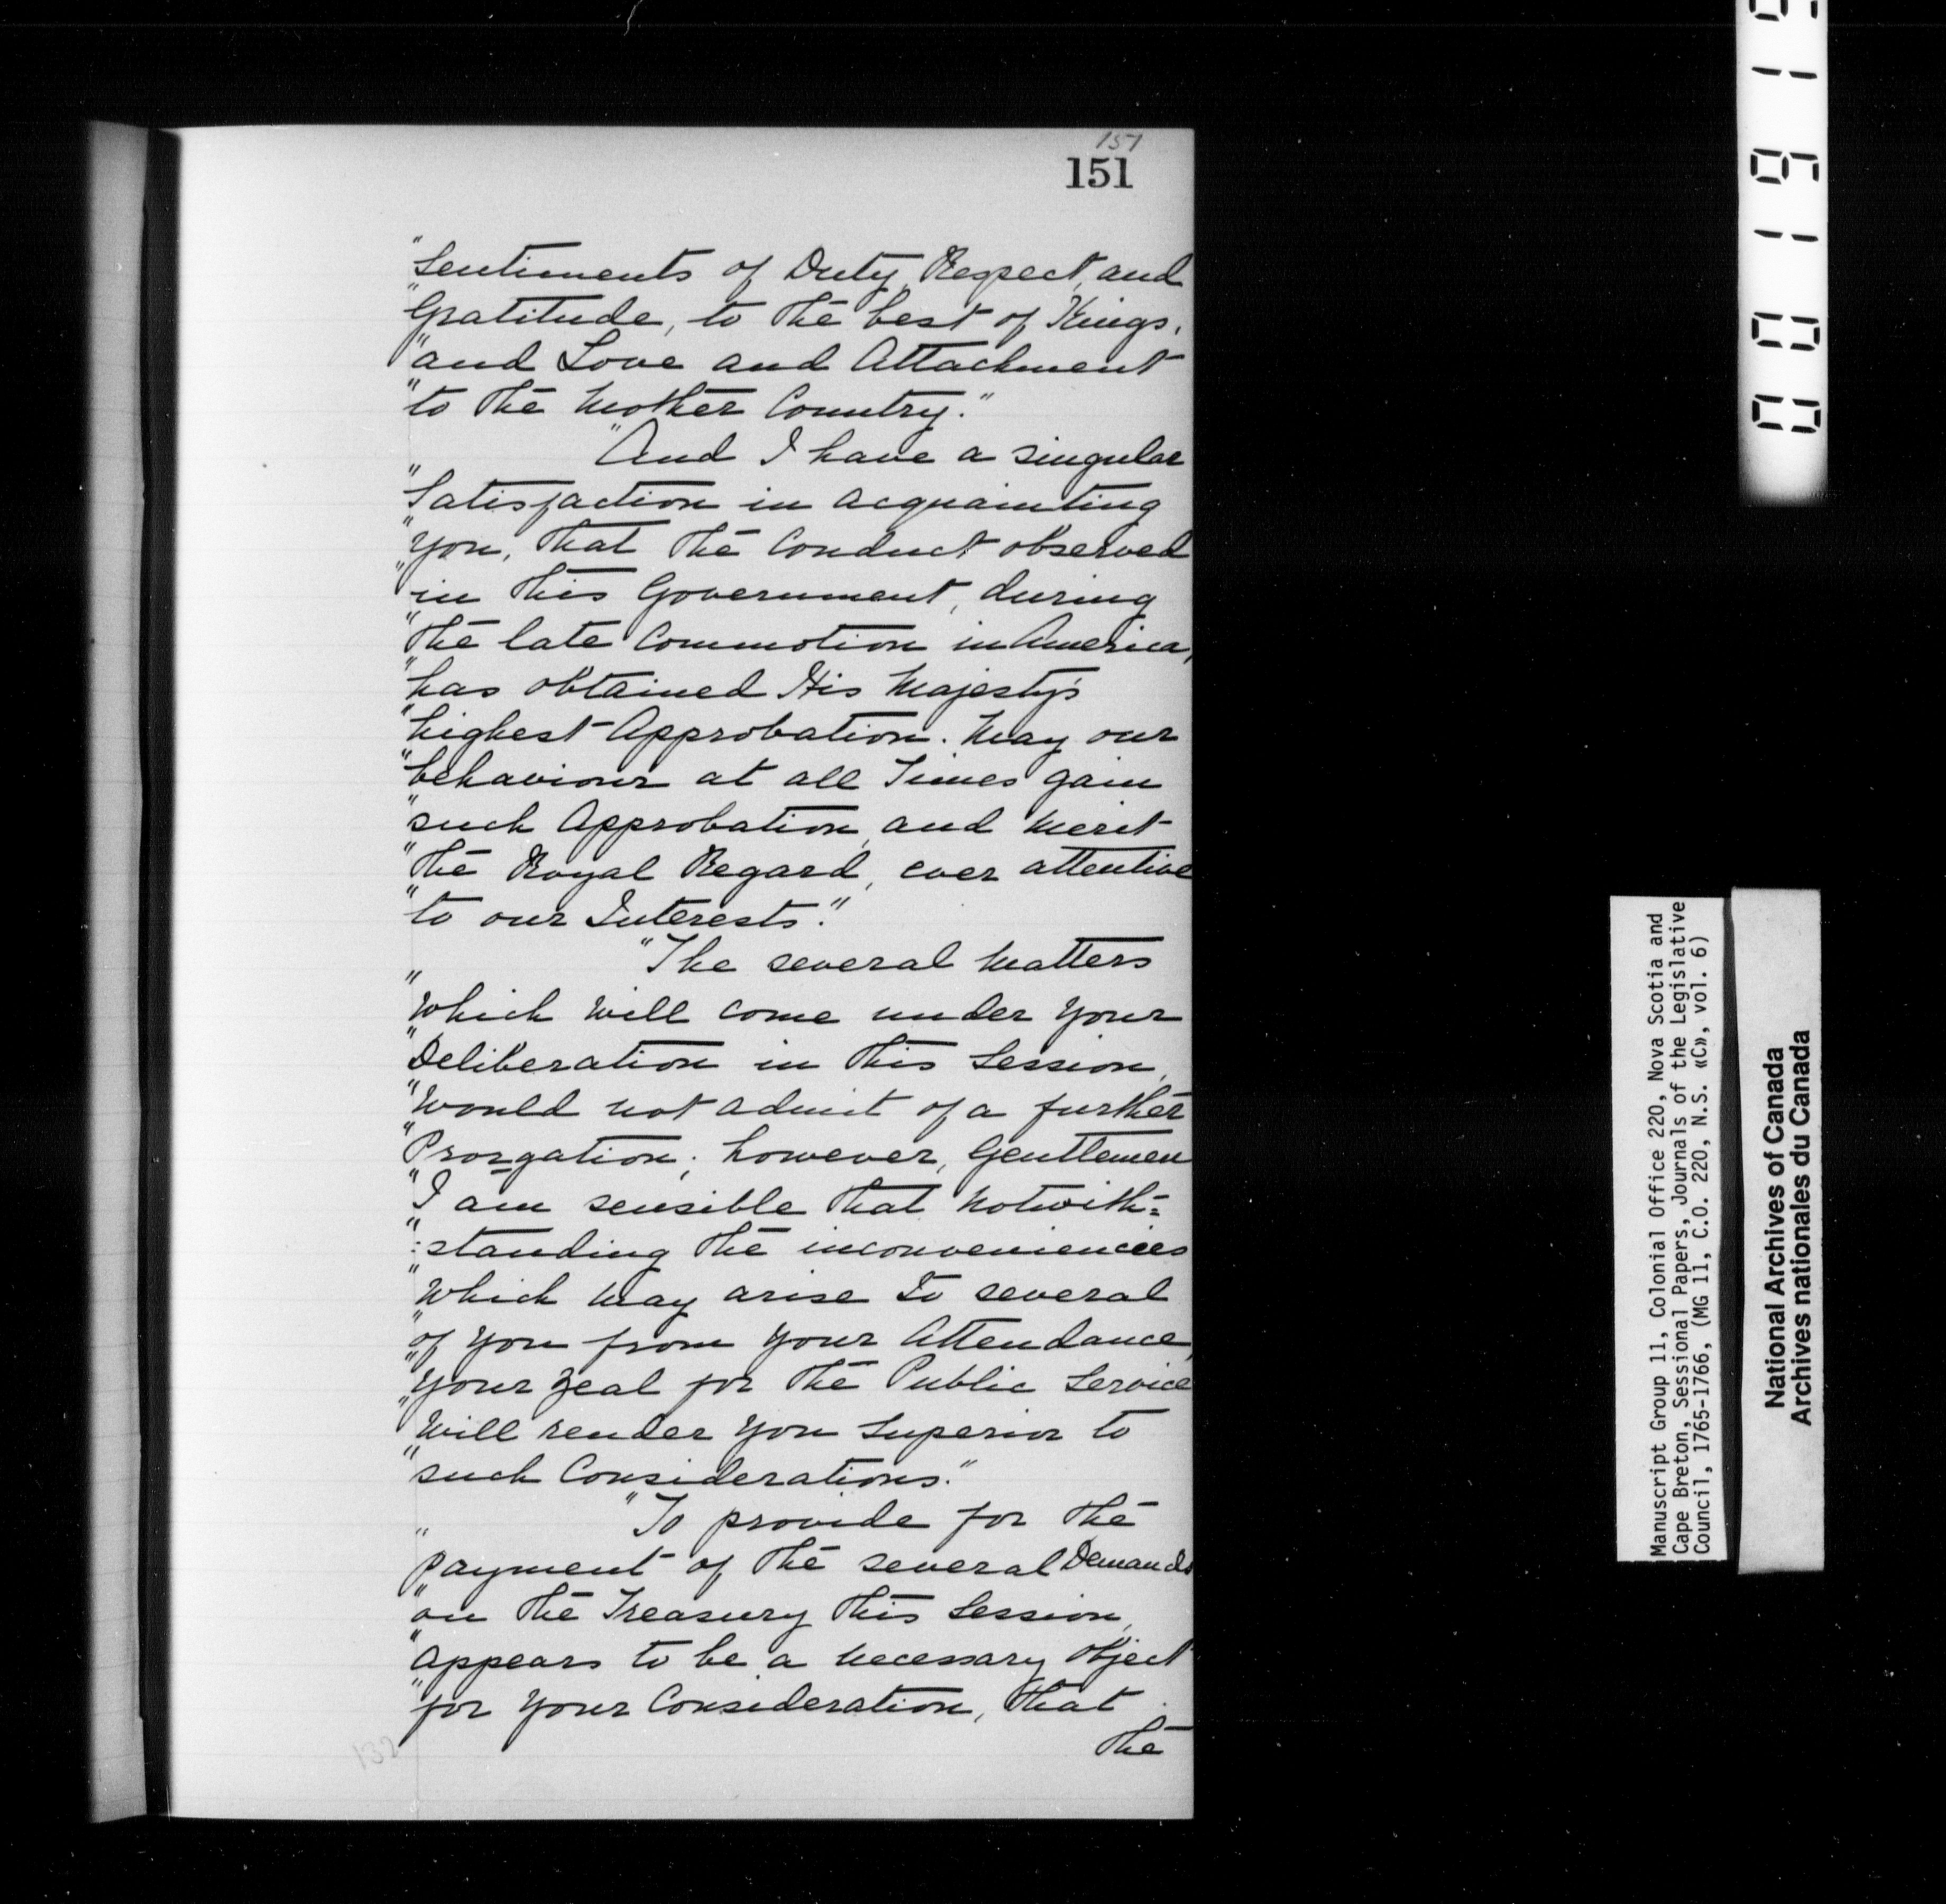 151
151
"Sentiments of Duty, Respect, and
"Gratitude, to the best of Kings,
"and Love and Attachment
"to the Mother Country."
"And I have a singular
"Satisfaction in acquainting
"you, that the Conduct observed
"in this Government, during
"the late Commotion in America,
"has obtained His Majesty's
"highest Approbation. May our
"behaviour at all Times gain
"such Approbation, and Merit
"the Royal Regard, ever attentive
"to our Interests."
"The several Matters
"which will come under your
"Deliberation in this Session,
"would not admit of a further
"Prorgation; however, Gentlemen
"I am sensible that Notwith=
":standing the inconveniencies
"which may arise to several
"of you from your Attendance,
"your Zeal for the Public Service
"will render you Superior to
"such Considerations."
"To provide for the
"Payment of the several Demands
"on the Treasury this Session,
"appears to be a necessary Object
"for your Consideration, that
the
132
Manuscript Group 11, Colonial Office 220, Nova Scotia and
Cape Breton, Sessional Papers, Journals of the Legislative
Council, 1765-1766, (MG 11, C.O. 220, N.S. «C», vol. 6)
National Archives of Canada
Archives nationales du Canada